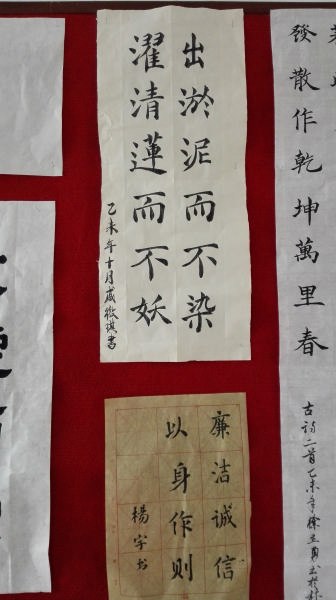 出淤泥而不染
濯清蓮而不妖
乙未年十月
書
廉洁诚信
以身作则
楊宇书
發散作乾坤萬里春
古詩二首乙未年徐